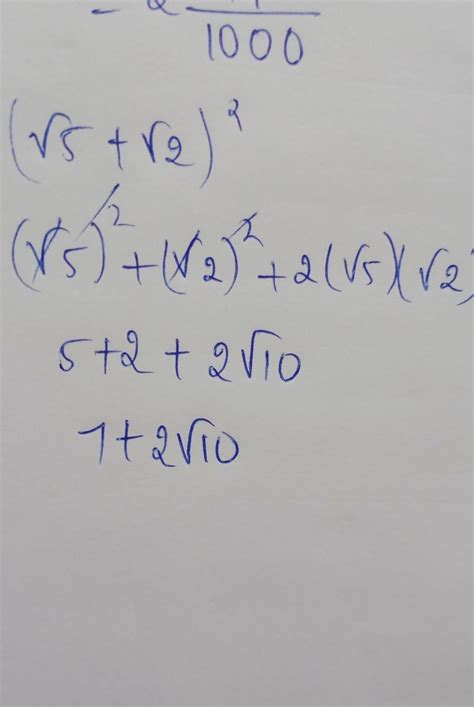 1000
(√5 + √2)²
(√5)² + (√2)² + 2(√5)(√2)
5 + 2 + 2√10
7 + 2√10